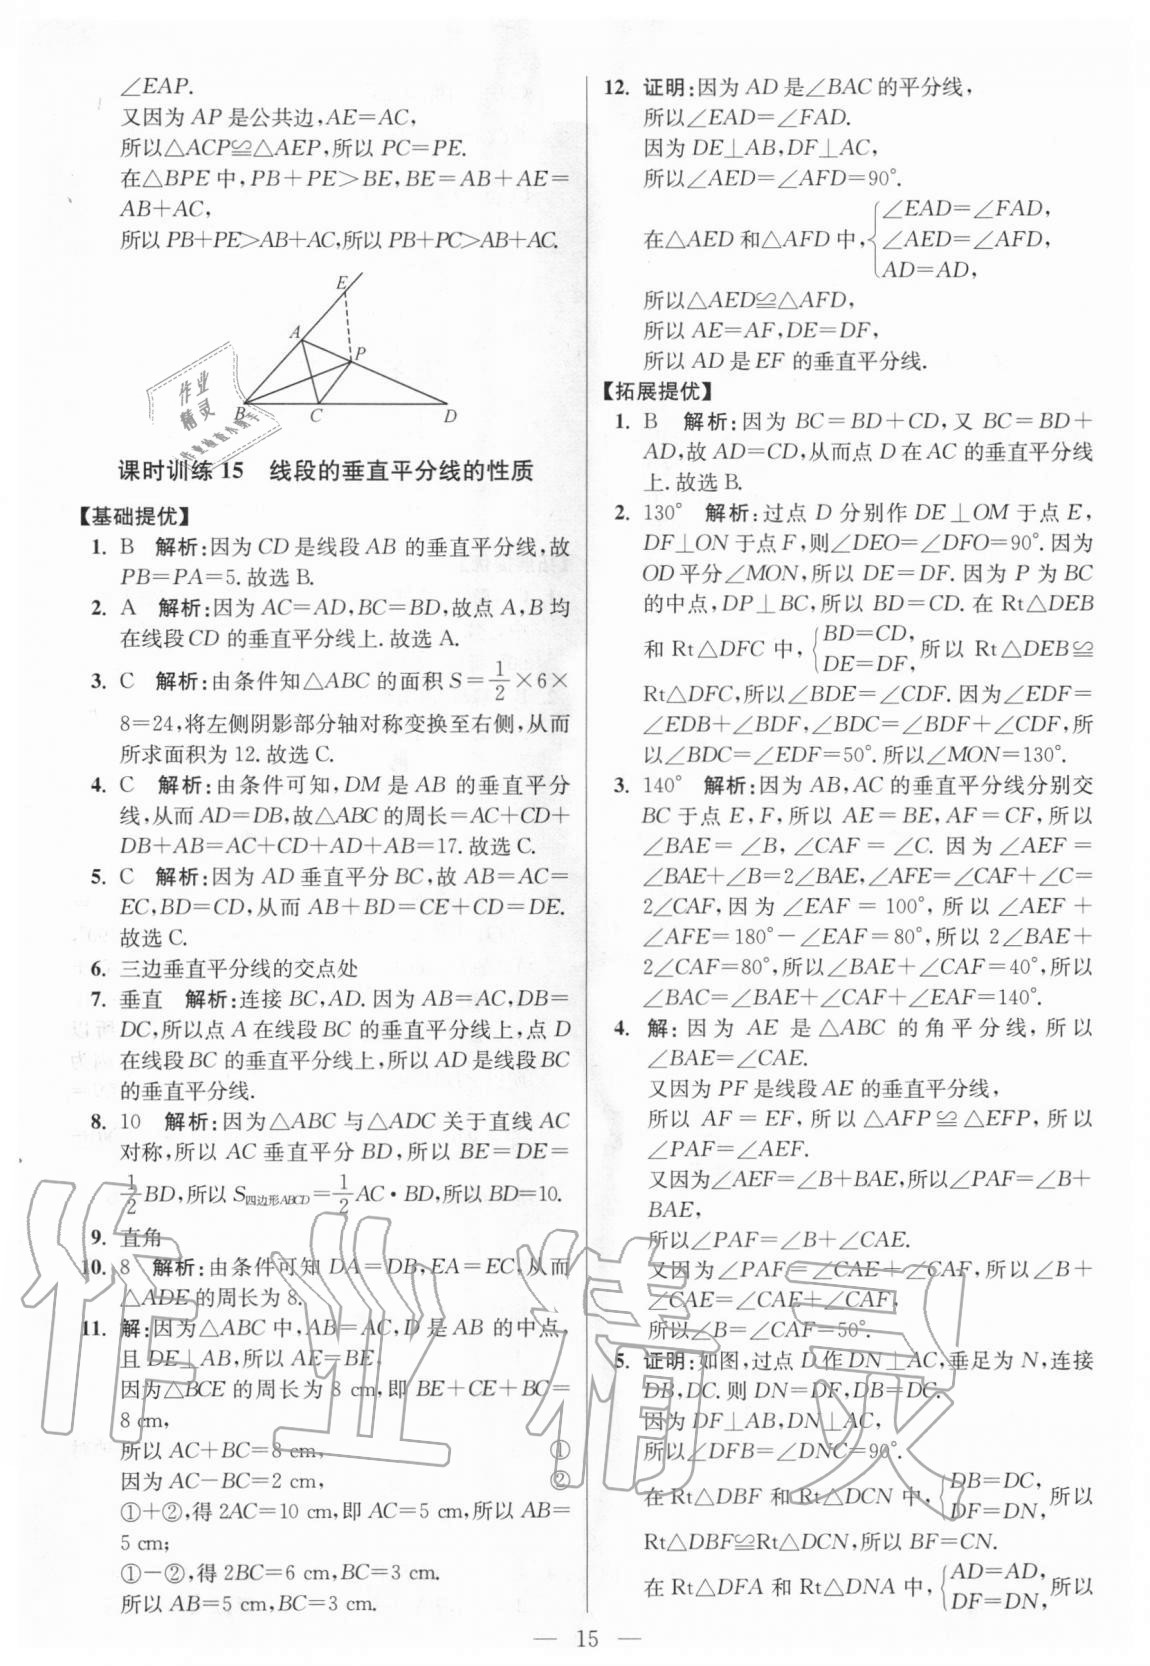 ∠EAP.
又因为 AP 是公共边,AE=AC,
所以△ACP≌△AEP,所以 PC=PE.
在△BPE 中,PB+PE>BE,BE=AB+AE=
AB+AC,
所以 PB+PE>AB+AC,所以 PB+PC>AB+AC.
E
A
P
B
C
D
作业
精灵
课时训练 15 线段的垂直平分线的性质
【基础提优】
1. B 解析:因为 CD 是线段 AB 的垂直平分线,故
PB=PA=5.故选 B.
2. A 解析:因为 AC=AD,BC=BD,故点 A,B 均
在线段 CD 的垂直平分线上.故选 A.
3. C 解析:由条件知△ABC 的面积 S=1/2×6×
8=24,将左侧阴影部分轴对称变换至右侧,从而
所求面积为 12.故选 C.
4. C 解析:由条件可知,DM 是 AB 的垂直平分
线,从而 AD=DB,故△ABC 的周长=AC+CD+
DB+AB=AC+CD+AD+AB=17.故选 C.
5. C 解析:因为 AD 垂直平分 BC,故 AB=AC=
EC,BD=CD,从而 AB+BD=CE+CD=DE.
故选 C.
6. 三边垂直平分线的交点处
7. 垂直 解析:连接 BC,AD.因为 AB=AC,DB=
DC,所以点 A 在线段 BC 的垂直平分线上,点 D
在线段 BC 的垂直平分线上,所以 AD 是线段 BC
的垂直平分线.
8. 10 解析:因为△ABC 与△ADC 关于直线 AC
对称,所以 AC 垂直平分 BD,所以 BE=DE=
1/2 BD,所以 S四边形ABCD=1/2 AC·BD,所以 BD=10.
9. 直角
10. 8 解析:由条件可知 DA=DB,EA=EC,从而
△ADE 的周长为 8.
11. 解:因为△ABC 中,AB=AC,D 是 AB 的中点,
且 DE⊥AB,所以 AE=BE,
因为△BCE 的周长为 8 cm,即 BE+CE+BC=
8 cm,
所以 AC+BC=8 cm, ①
因为 AC-BC=2 cm, ②
①+②,得 2AC=10 cm,即 AC=5 cm,所以 AB=
5 cm;
①-②,得 2BC=6 cm,BC=3 cm.
所以 AB=5 cm,BC=3 cm.
12. 证明:因为 AD 是∠BAC 的平分线,
所以∠EAD=∠FAD.
因为 DE⊥AB,DF⊥AC,
所以∠AED=∠AFD=90°.
在△AED 和△AFD 中,{∠EAD=∠FAD,
∠AED=∠AFD,
AD=AD,
所以△AED≌△AFD,
所以 AE=AF,DE=DF,
所以 AD 是 EF 的垂直平分线.
【拓展提优】
1. B 解析:因为 BC=BD+CD,又 BC=BD+
AD,故 AD=CD,从而点 D 在 AC 的垂直平分线
上.故选 B.
2. 130° 解析:过点 D 分别作 DE⊥OM 于点 E,
DF⊥ON 于点 F,则∠DEO=∠DFO=90°.因为
OD 平分∠MON,所以 DE=DF.因为 P 为 BC
的中点,DP⊥BC,所以 BD=CD.在 Rt△DEB
和 Rt△DFC 中,{BD=CD, DE=DF,所以 Rt△DEB≌
Rt△DFC,所以∠BDE=∠CDF.因为∠EDF=
∠EDB+∠BDF,∠BDC=∠BDF+∠CDF,所
以∠BDC=∠EDF=50°.所以∠MON=130°.
3. 140° 解析:因为 AB,AC 的垂直平分线分别交
BC 于点 E,F,所以 AE=BE,AF=CF,所以
∠BAE=∠B,∠CAF=∠C.因为∠AEF=
∠BAE+∠B=2∠BAE,∠AFE=∠CAF+∠C=
2∠CAF,因为∠EAF=100°,所以∠AEF+
∠AFE=180°-∠EAF=80°,所以 2∠BAE+
2∠CAF=80°,所以∠BAE+∠CAF=40°,所以
∠BAC=∠BAE+∠CAF+∠EAF=140°.
4. 解:因为 AE 是△ABC 的角平分线,所以
∠BAE=∠CAE.
又因为 PF 是线段 AE 的垂直平分线,
所以 AF=EF,所以△AFP≌△EFP,所以
∠PAF=∠AEF.
又因为∠AEF=∠B+BAE,所以∠PAF=∠B+
BAE,
所以∠PAF=∠B+∠CAE.
又因为∠PAF=∠CAE+∠CAF,所以∠B+
∠CAE=∠CAE+∠CAF,
所以∠B=∠CAF=50°.
5. 证明:如图,过点 D 作 DN⊥AC,垂足为 N,连接
DB,DC.则 DN=DF,DB=DC.
因为 DF⊥AB,DN⊥AC,
所以∠DFB=∠DNC=90°.
在 Rt△DBF 和 Rt△DCN 中,{DB=DC, DF=DN,所以
Rt△DBF≌Rt△DCN,所以 BF=CN.
在 Rt△DFA 和 Rt△DNA 中,{AD=AD, DF=DN,所以
作业精灵
— 15 —